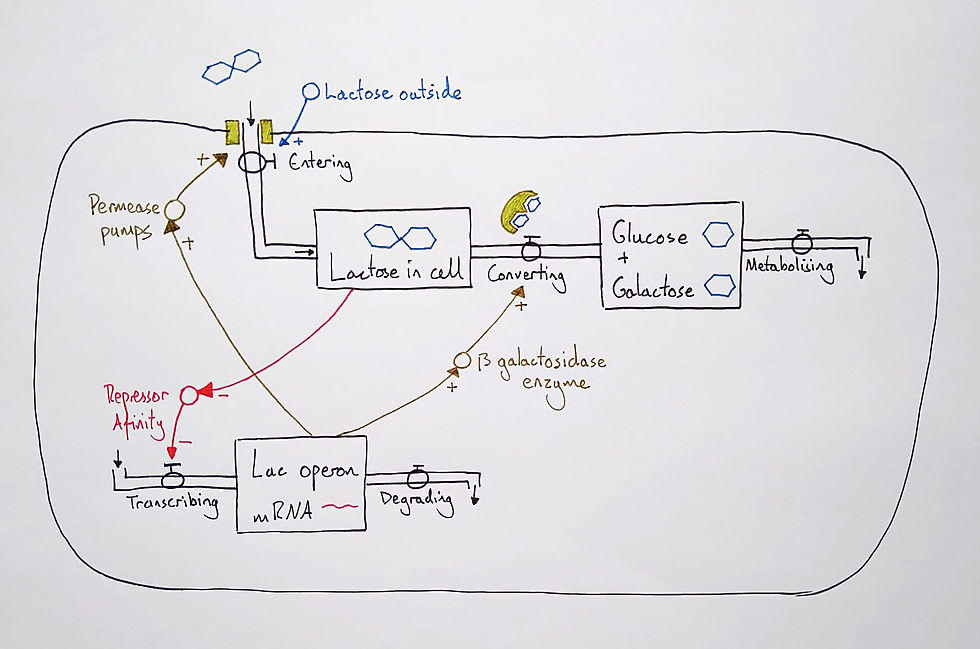 Lactose outside
+
+
Entering
Permease
pumps
+
Lactose in cell
Converting
+
Glucose
+
Galactose
Metabolising
β galactosidase
enzyme
+
Repressor
Afinity
-
-
Transcribing
Lac operon
mRNA
Degrading